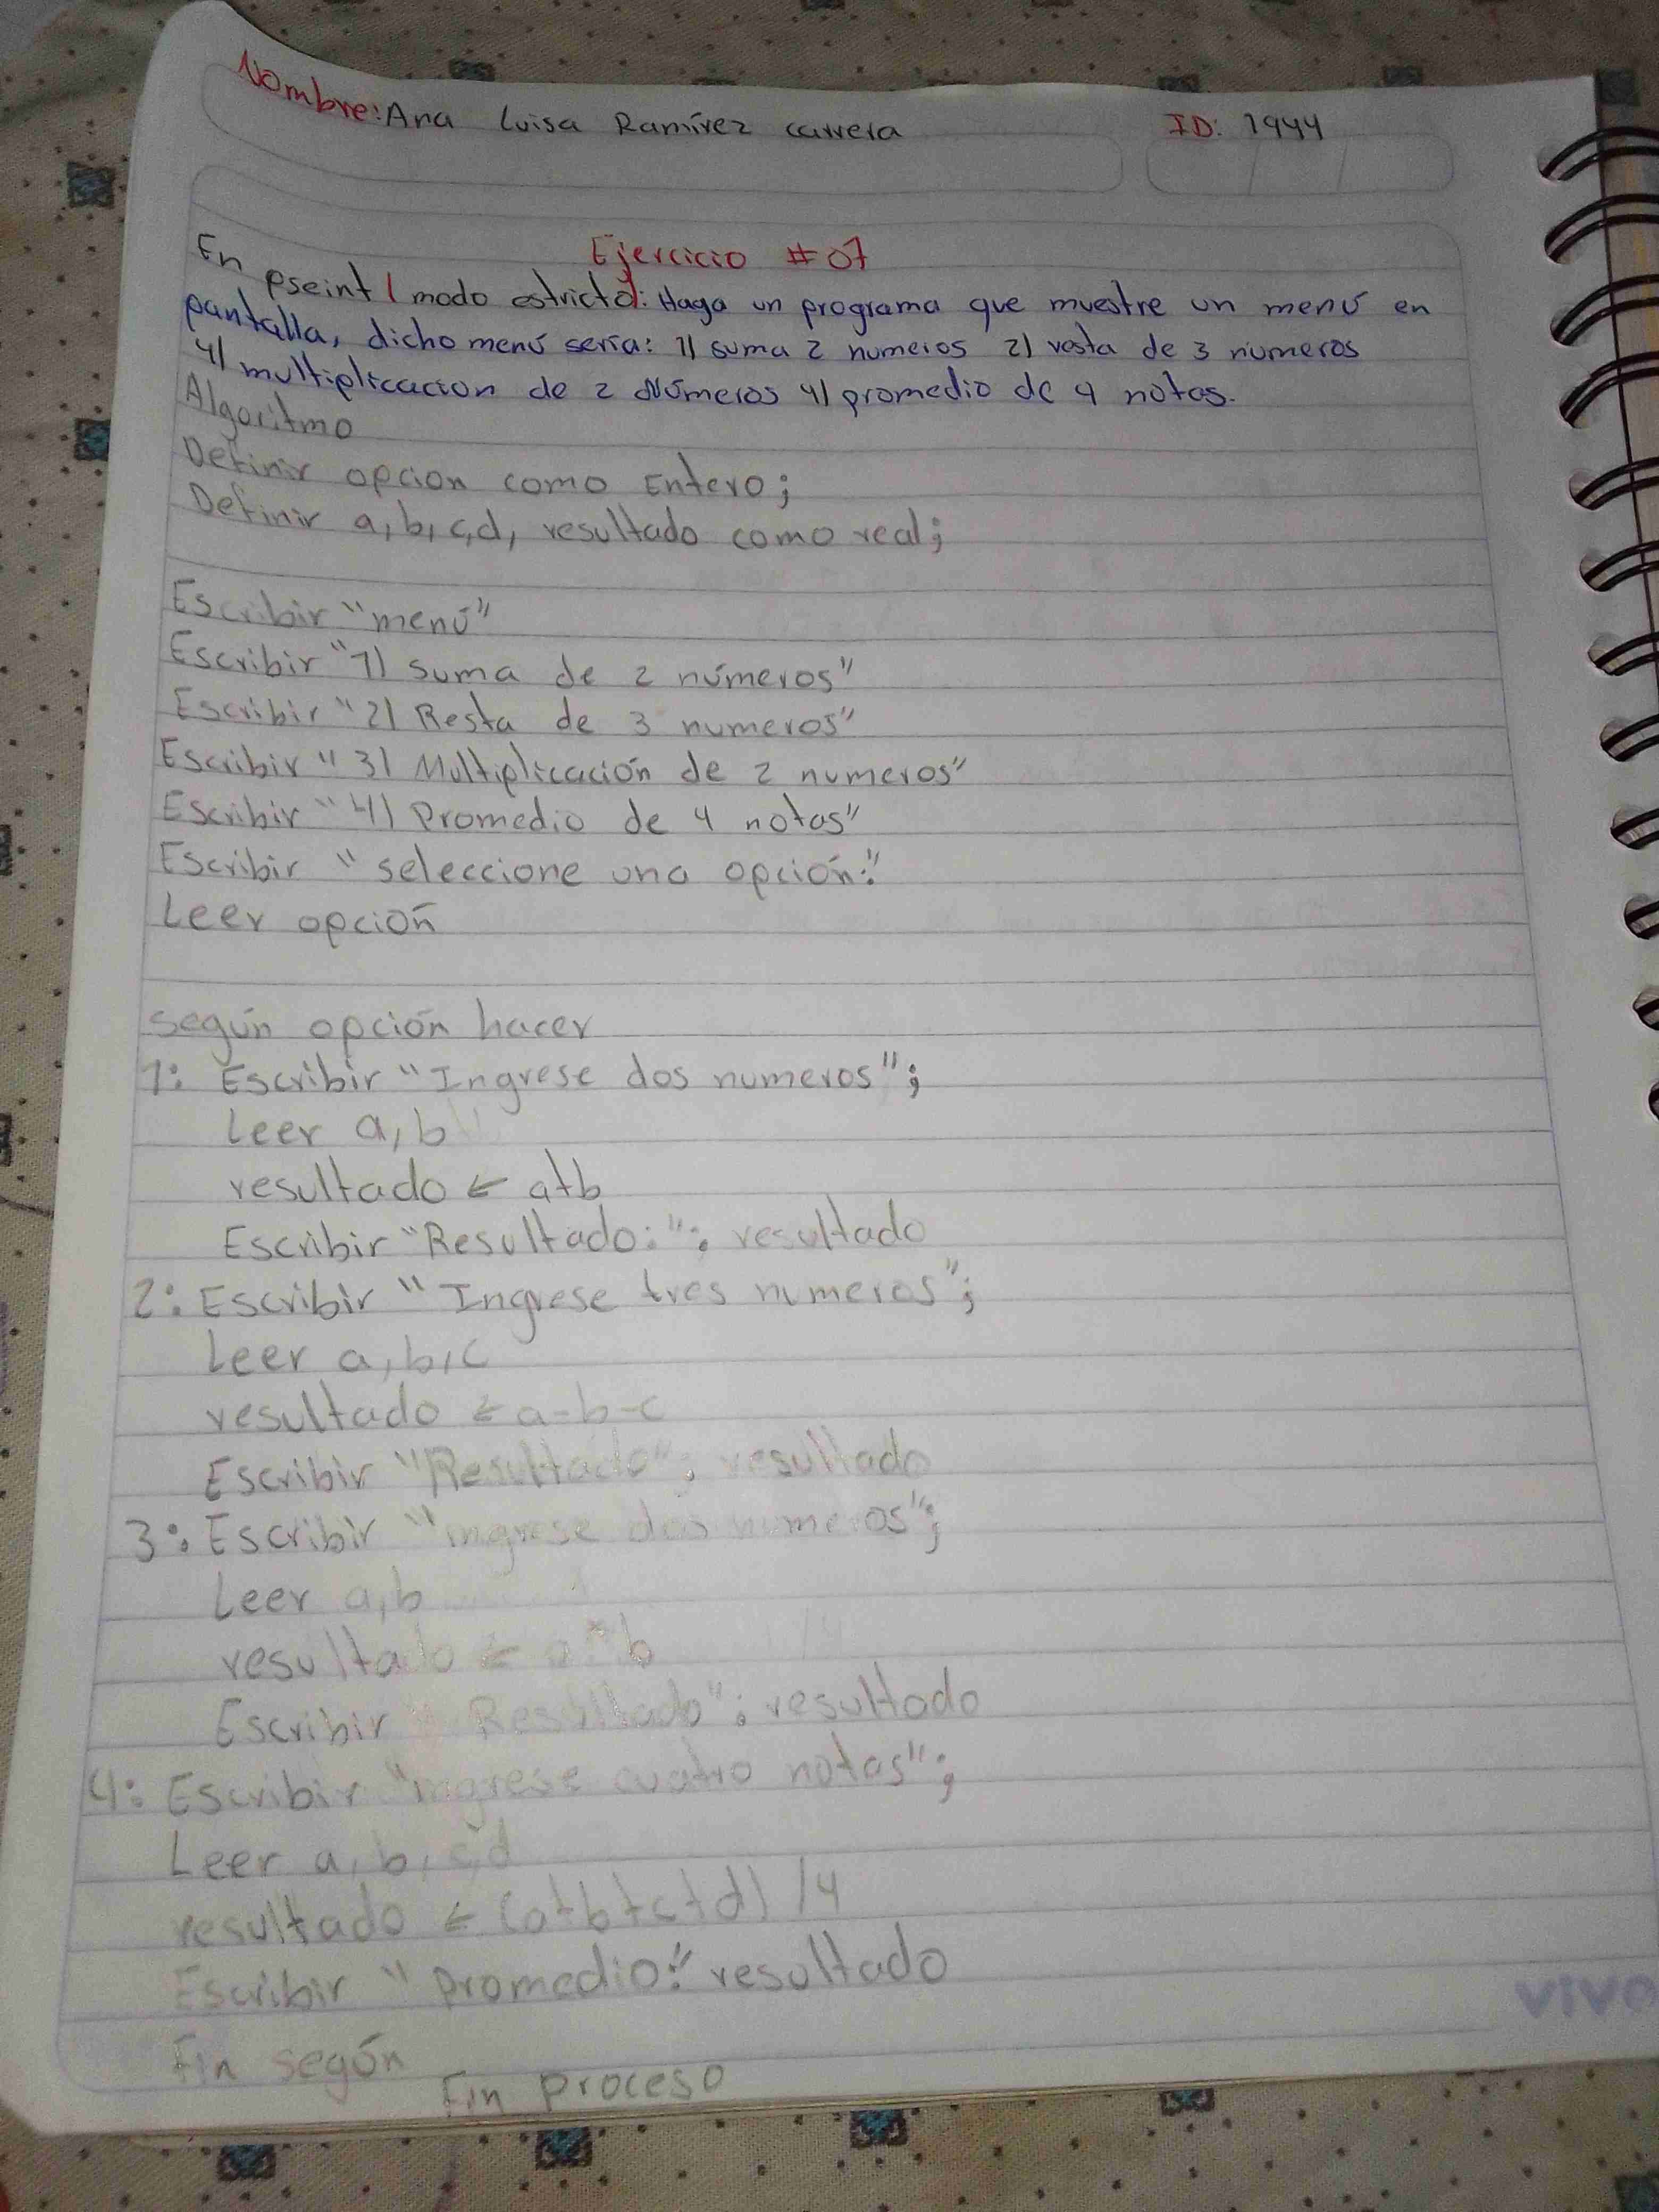 Nombre: Ana Luisa Ramírez carrera ID: 1944
Ejercicio #07
En pseint / modo estricto: Haga un programa que muestre un menú en
pantalla, dicho menú sería: 1) suma 2 numeros 2) resta de 3 numeros
4) multiplicacion de 2 Números 4) promedio de 4 notas.
Algoritmo
Definir opcion como Entero;
Definir a, b, c, d, resultado como real;
Escribir "menú"
Escribir "1) suma de 2 números"
Escribir "2) Resta de 3 numeros"
Escribir "3) Multiplicación de 2 numeros"
Escribir "4) Promedio de 4 notas"
Escribir "seleccione una opción:"
Leer opción
según opción hacer
1: Escribir "Ingrese dos numeros";
Leer a, b
resultado ← a+b
Escribir "Resultado:"; resultado
2: Escribir "Ingrese tres numeros";
Leer a, b, c
resultado ← a-b-c
Escribir "Resultado"; resultado
3: Escribir "ingrese dos numeros";
Leer a, b
resultado ← a*b
Escribir "Resultado"; resultado
4: Escribir "ingrese cuatro notas";
Leer a, b, c, d
resultado ← (a+b+c+d) /4
Escribir "promedio:" resultado
Fin según
Fin proceso
vivo